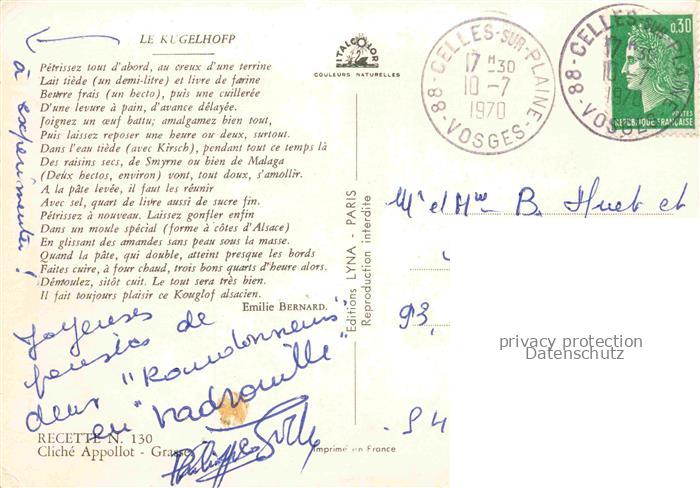 LE KUGELHOFP
Pétrissez tout d'abord, au creux d'une terrine
Lait tiède (un demi-litre) et livre de farine
Beurre frais (un hecto), puis une cuillerée
D'une levure à pain, d'avance délayée.
Joignez un œuf battu; amalgamez bien tout,
Puis laissez reposer une heure ou deux, surtout.
Dans l'eau tiède (avec Kirsch), pendant tout ce temps là
Des raisins secs, de Smyrne ou bien de Malaga
(Deux hectos, environ) vont, tout doux, s'amollir.
A la pâte levée, il faut les réunir
Avec sel, quart de livre aussi de sucre fin.
Pétrissez à nouveau. Laissez gonfler enfin
Dans un moule spécial (forme à côtes d'Alsace)
En glissant des amandes sans peau sous la masse.
Quand la pâte, qui double, atteint presque les bords
Faites cuire, à four chaud, trois bons quarts d'heure alors.
Démoulez, sitôt cuit. Le tout sera très bien.
Il fait toujours plaisir ce Kouglof alsacien.
Emilie BERNARD.
à expérimenter !
Joyeuses
pensées de
deux "Randonneurs"
en "vadrouille"
RECETTE N. 130
Cliché Appollot - Grasse
Imprimé en France
ITALCOLOR
COULEURS NATURELLES
Editions LYNA - PARIS
Reproduction interdite
88 - CELLES-SUR-PLAINE - VOSGES
17 H 30
10-7
1970
88 - CELLES-SUR-PLAINE - VOSGES
17 H 30
10-7
1970
0,30
POSTES
REPUBLIQUE FRANÇAISE
Mr et Mme B. Huet et
93,
94
privacy protection
Datenschutz